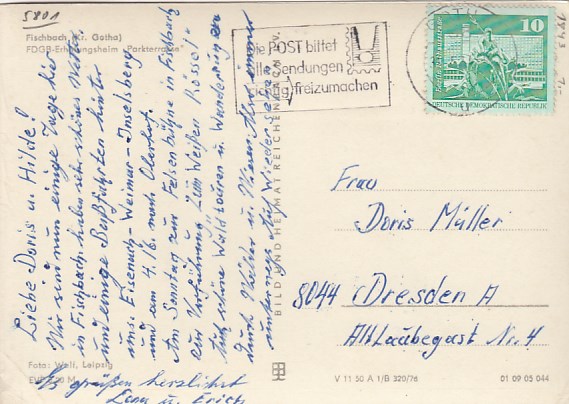 5801
Fischbach (Kr. Gotha)
FDGB-Erholungsheim „Parkterrasse"
Liebe Doris u. Hilde!
Wir sind nun einige Tage hier
in Fischbach haben sehr schönes Wetter
und einige Busfahrten hinter
uns. Eisenach-Weimar-Inselsberg
und am 4./6. nach Oberhof.
Am Sonntag zur Felsenbühne in Fischbach
zur Vorführung „Zum Weißen Rössel".
Sich schöne Waldtouren u. Wanderung
durch Wälder u. Wiesen. Also immer
unterwegs. Auf Wiedersehen
Es grüßen herzlichst
Lena u. Erich
Foto: Woll, Leipzig
BILD UND HEIMAT REICHENBACH I. V.
Die POST bittet
alle Sendungen
richtig freizumachen
GOTHA
10
DEUTSCHE DEMOKRATISCHE REPUBLIK
Frau
Doris Müller
8044 Dresden A
Altlaubegast Nr. 4
V 11 50 A 1/B 320/76
01 09 05 044